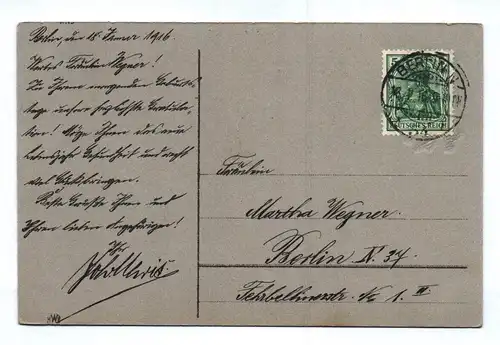 Berlin, den 18. Januar 1916
Wertes Fräulein Wegner!
Zu Ihrem morgenden Geburts-
tage unsere herzlichste Gratula-
tion! Möge Ihnen das neue
Lebensjahr Gesundheit und recht
viel Glück bringen.
Beste Grüße Ihnen und
Ihren lieben Angehörigen!
Ihr
BERLIN
DEUTSCHES REICH
Fräulein
Martha Wegner.
Berlin N. 37
Fehrbellinerstr. No 1 III